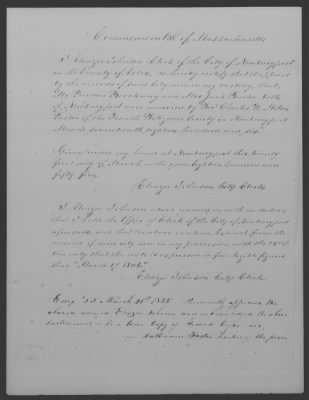 Commonwealth of Massachusetts
I Eleazer Johnson Clerk of the City of Newburyport
in the County of Essex, do hereby certify that it appears
by the records of said City in my custody, that
Mr. and Mrs. Jane both
of Newburyport were married by Rev. Charles W. Milton
Pastor of the Religious Society in Newburyport
March seventeenth eighteen hundred and six.
Given under my hand at Newburyport this twenty
first day of March in the year eighteen hundred and
fifty five.
Eleazer Johnson City Clerk
I Eleazer Johnson above
that I hold the Office of Clerk of the City of Newburyport
aforesaid, and that the above is a true extract from the
records of said city now in my possession with the excep-
tion only that the date is expressed in four legible figures
thus "March 17. 1806."
Eleazer Johnson City Clerk.
Essex ss. March 21st 1855 Personally appeared the
above named Eleazer Johnson and acknowledged the above
instrument to be a true Copy of Record before me,
Nathaniel Foster Justice of the peace